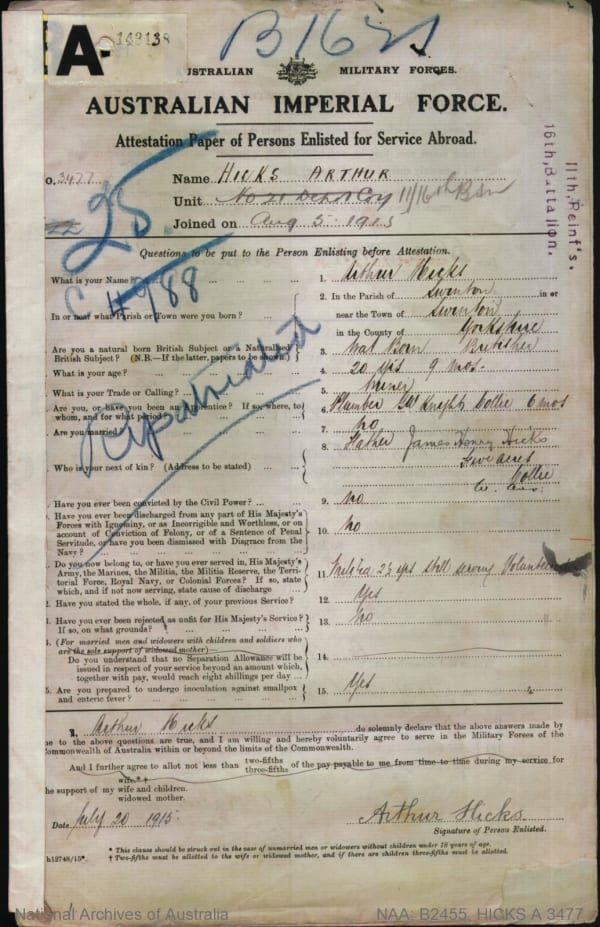 B16
A-
143138
AUSTRALIAN MILITARY FORCES.
AUSTRALIAN IMPERIAL FORCE.
Attestation Paper of Persons Enlisted for Service Abroad.
o. 3477 Name HICKS ARTHUR
Unit No 11/16th Bn
Joined on Aug 5. 1915
11th, Reinf's.
16th, Battalion.
25
Questions to be put to the Person Enlisting before Attestation.
What is your Name? 1. Arthur Hicks
In or near what Parish or Town were you born? 2. In the Parish of Swinton in or
near the Town of Swinton
in the County of Yorkshire
988
Are you a natural born British Subject or a Naturalised British Subject? (N.B.—If the latter, papers to be shown.) 3. Nat Born Britisher
What is your age? 4. 20 yrs 9 mos.
What is your Trade or Calling? 5. Miner
Are you, or have you been an Apprentice? If so, where, to whom, and for what period? 6. Plumber Knights Collie 6 mos
Are you married? 7. No
Repatriated
Who is your next of kin? (Address to be stated) 8. Father James Henry Hicks
Five acres
Collie
W. Aus.
9. Have you ever been convicted by the Civil Power? 9. No
0. Have you ever been discharged from any part of His Majesty's
Forces with Ignominy, or as Incorrigible and Worthless, or on
account of Conviction of Felony, or of a Sentence of Penal
Servitude, or have you been dismissed with Disgrace from the
Navy? 10. No
1. Do you now belong to, or have you ever served in, His Majesty's
Army, the Marines, the Militia, the Militia Reserve, the Terri-
torial Force, Royal Navy, or Colonial Forces? If so, state
which, and if not now serving, state cause of discharge 11. still serving Volunteer
2. Have you stated the whole, if any, of your previous Service? 12. Yes
3. Have you ever been rejected as unfit for His Majesty's Service?
If so, on what grounds? 13. No
4. (For married men and widowers with children and soldiers who
are the sole support of widowed mother)—
Do you understand that no Separation Allowance will be
issued in respect of your service beyond an amount which,
together with pay, would reach eight shillings per day 14.
5. Are you prepared to undergo inoculation against smallpox
and enteric fever? 15. Yes
I, Arthur Hicks do solemnly declare that the above answers made by
me to the above questions are true, and I am willing and hereby voluntarily agree to serve in the Military Forces of the
Commonwealth of Australia within or beyond the limits of the Commonwealth.
And I further agree to allot not less than two-fifths three-fifths of the pay payable to me from time to time during my service for
wife.*†
the support of my wife and children.
widowed mother.
Date July 20 1915. Arthur Hicks.
Signature of Person Enlisted.
* This clause should be struck out in the case of unmarried men or widowers without children under 18 years of age.
† Two-fifths must be allotted to the wife or widowed mother, and if there are children three-fifths must be allotted.
h12748/15*.
National Archives of Australia NAA: B2455, HICKS A 3477